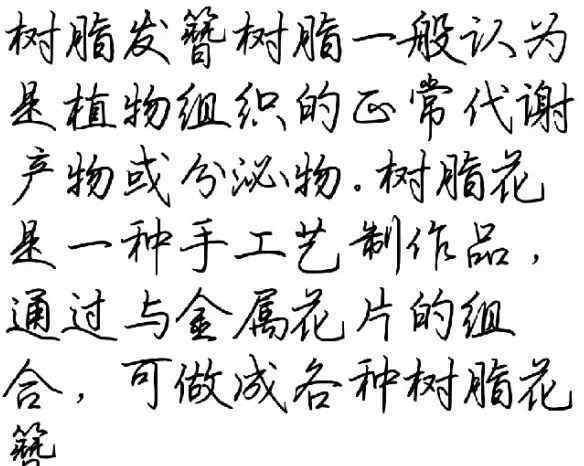 树脂发簪树脂一般认为
是植物组织的正常代谢
产物或分泌物。树脂花
是一种手工艺制作品，
通过与金属花片的组
合，可做成各种树脂花
簪